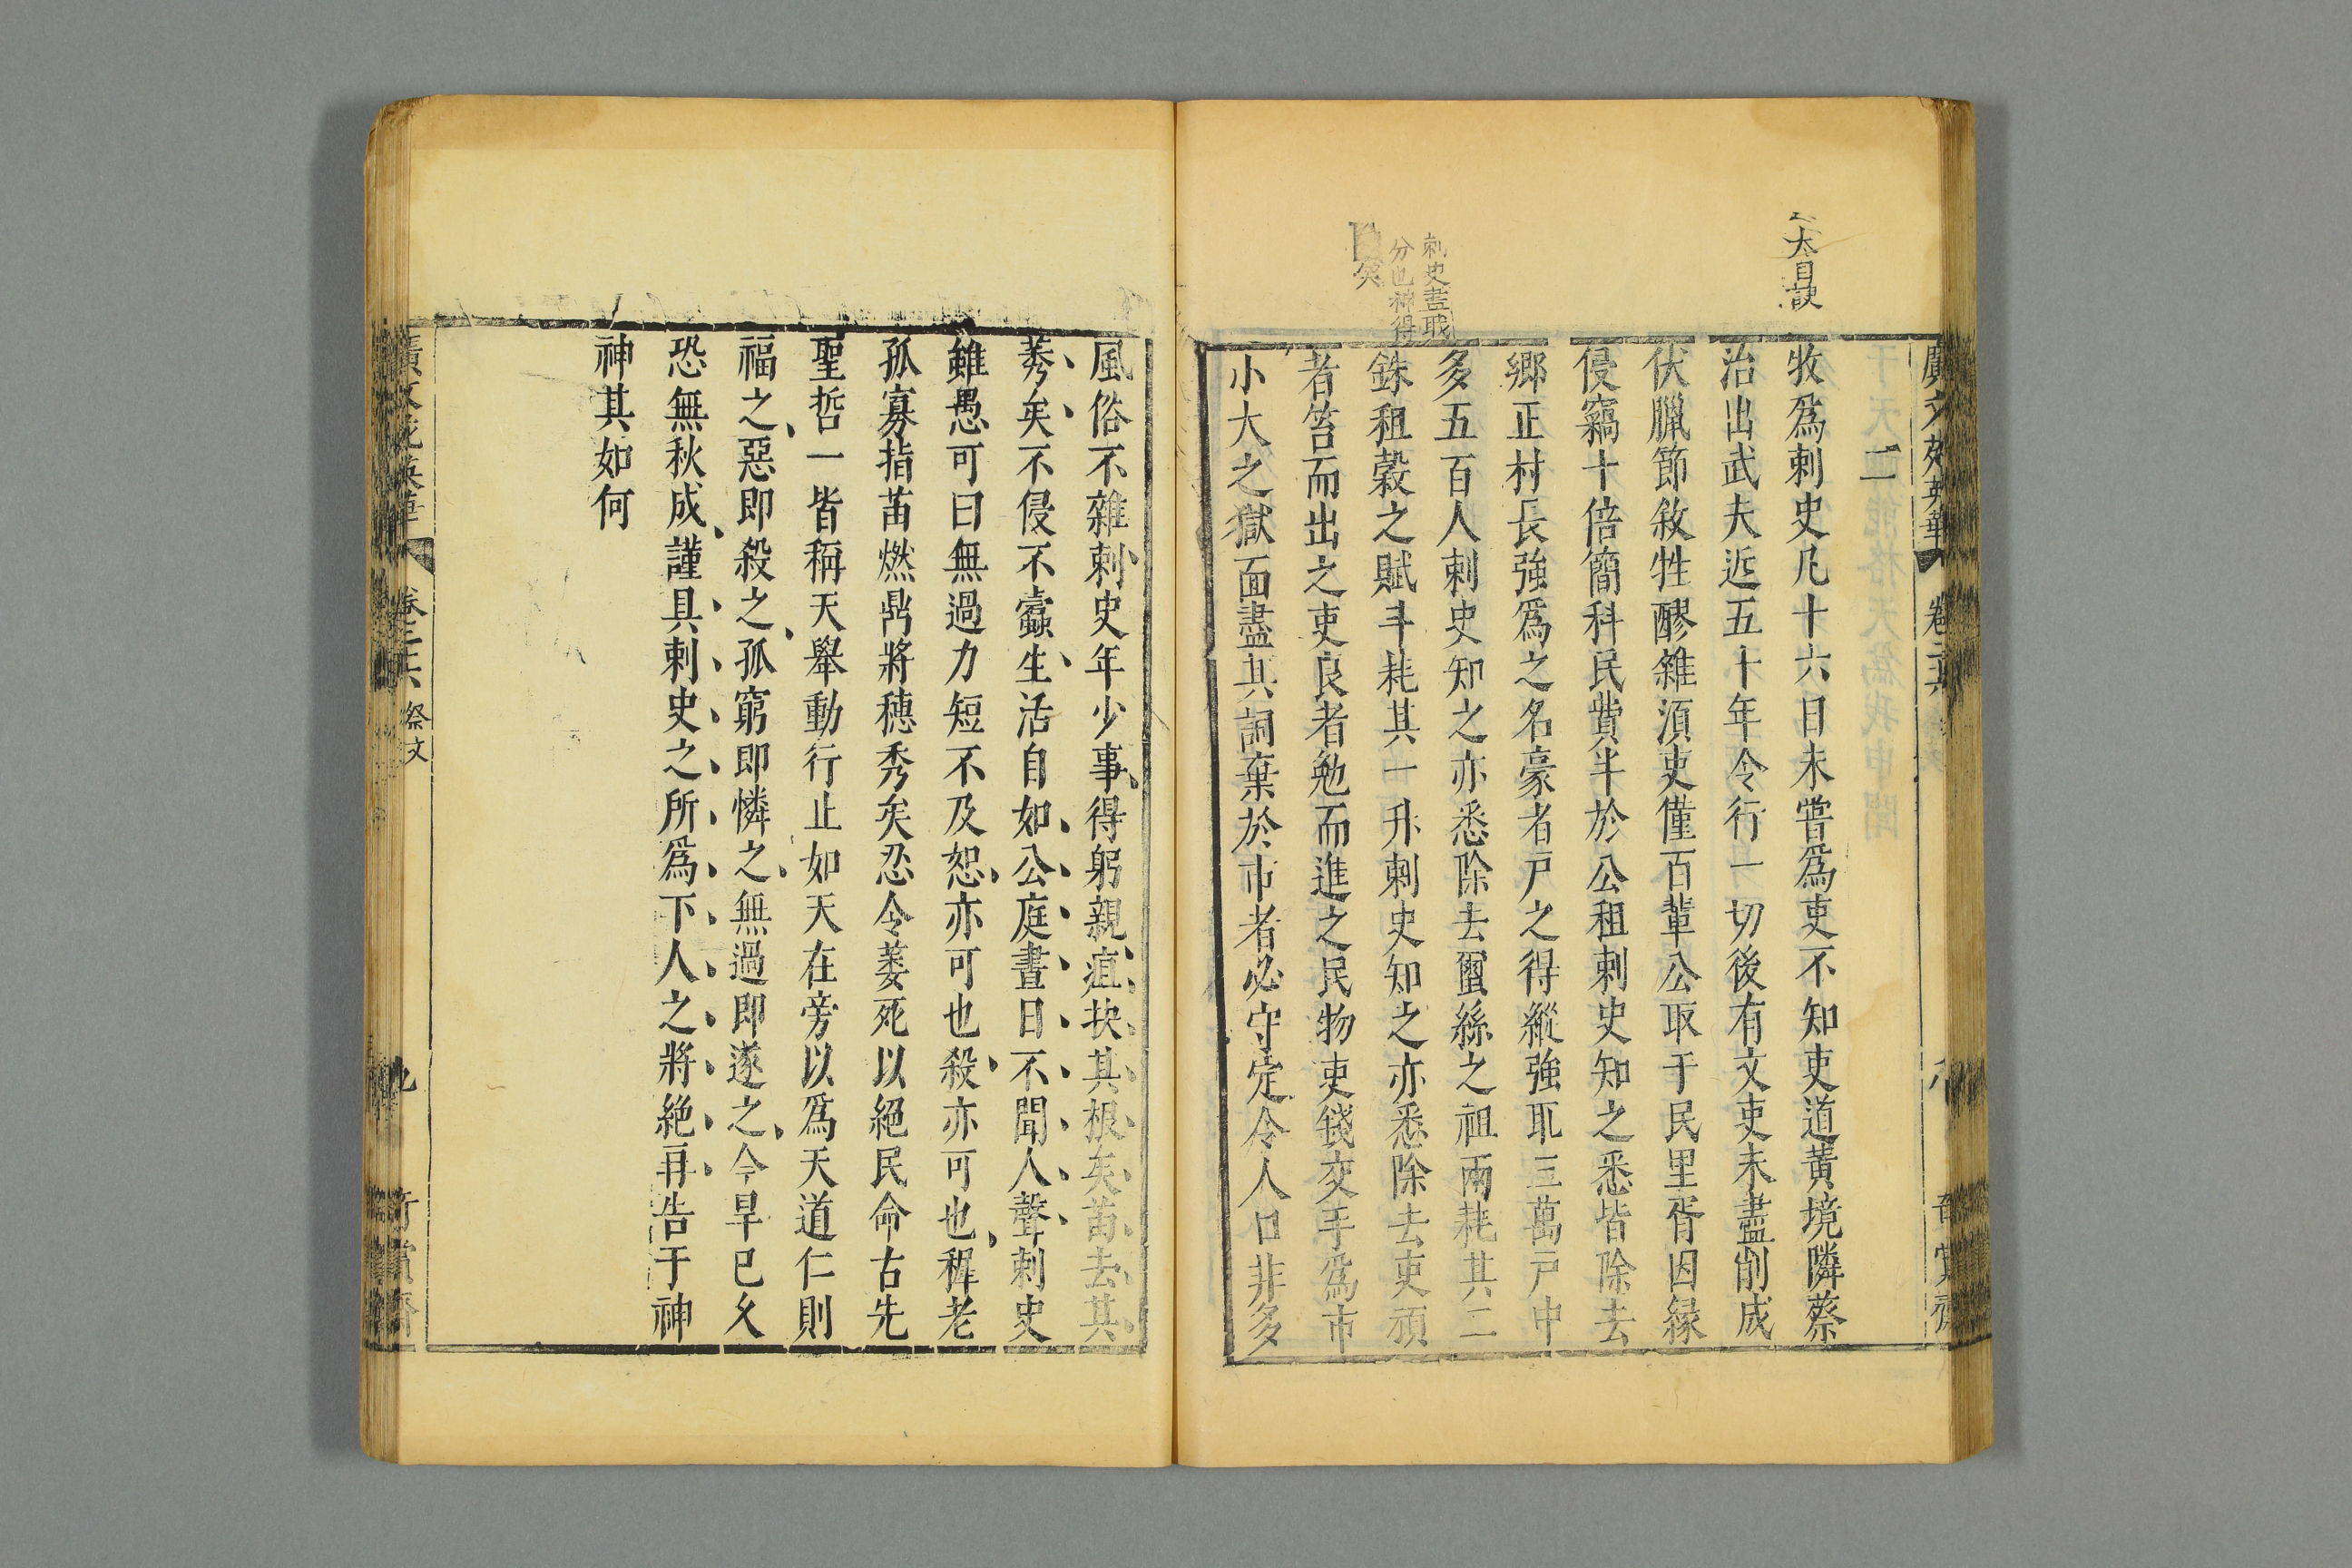 廣文苑英華 卷二十六
八
二
牧爲刺史凡十六日未嘗爲吏不知吏道黃境隣蔡
治出武夫近五十年令行一切後有文吏未盡削成
伏臘節敘牲醪雜須吏僅百輩公取于民里胥因緣
侵竊十倍簡科民費半於公租刺史知之悉皆除去
鄉正村長強爲之名豪者尸之得縱強取三萬戶中
多五百人刺史知之亦悉除去蠒絲之租兩耗其二
銖租穀之賦斗耗其一升刺史知之亦悉除去吏頑
者笞而出之吏良者勉而進之民物吏錢交手爲市
小大之獄面盡其詞棄於市者必守定令人口非多
刺史盡職
分也神得
風俗不雜刺史年少事得躬親疽抉其根矣苗去其
莠矣不侵不蠹生活自如公庭晝日不聞人聲刺史
雖愚可曰無過力短不及恕亦可也殺亦可也稺老
孤寡指苗燃鼎將穗秀矣忍令萎死以絕民命古先
聖哲一皆稱天舉動行止如天在旁以爲天道仁則
福之惡即殺之孤窮即憐之無過即遂之今旱已久
恐無秋成謹具刺史之所爲下人之將絕再告于神
神其如何
廣文苑英華 卷二十六 祭文
九
奇賞齋